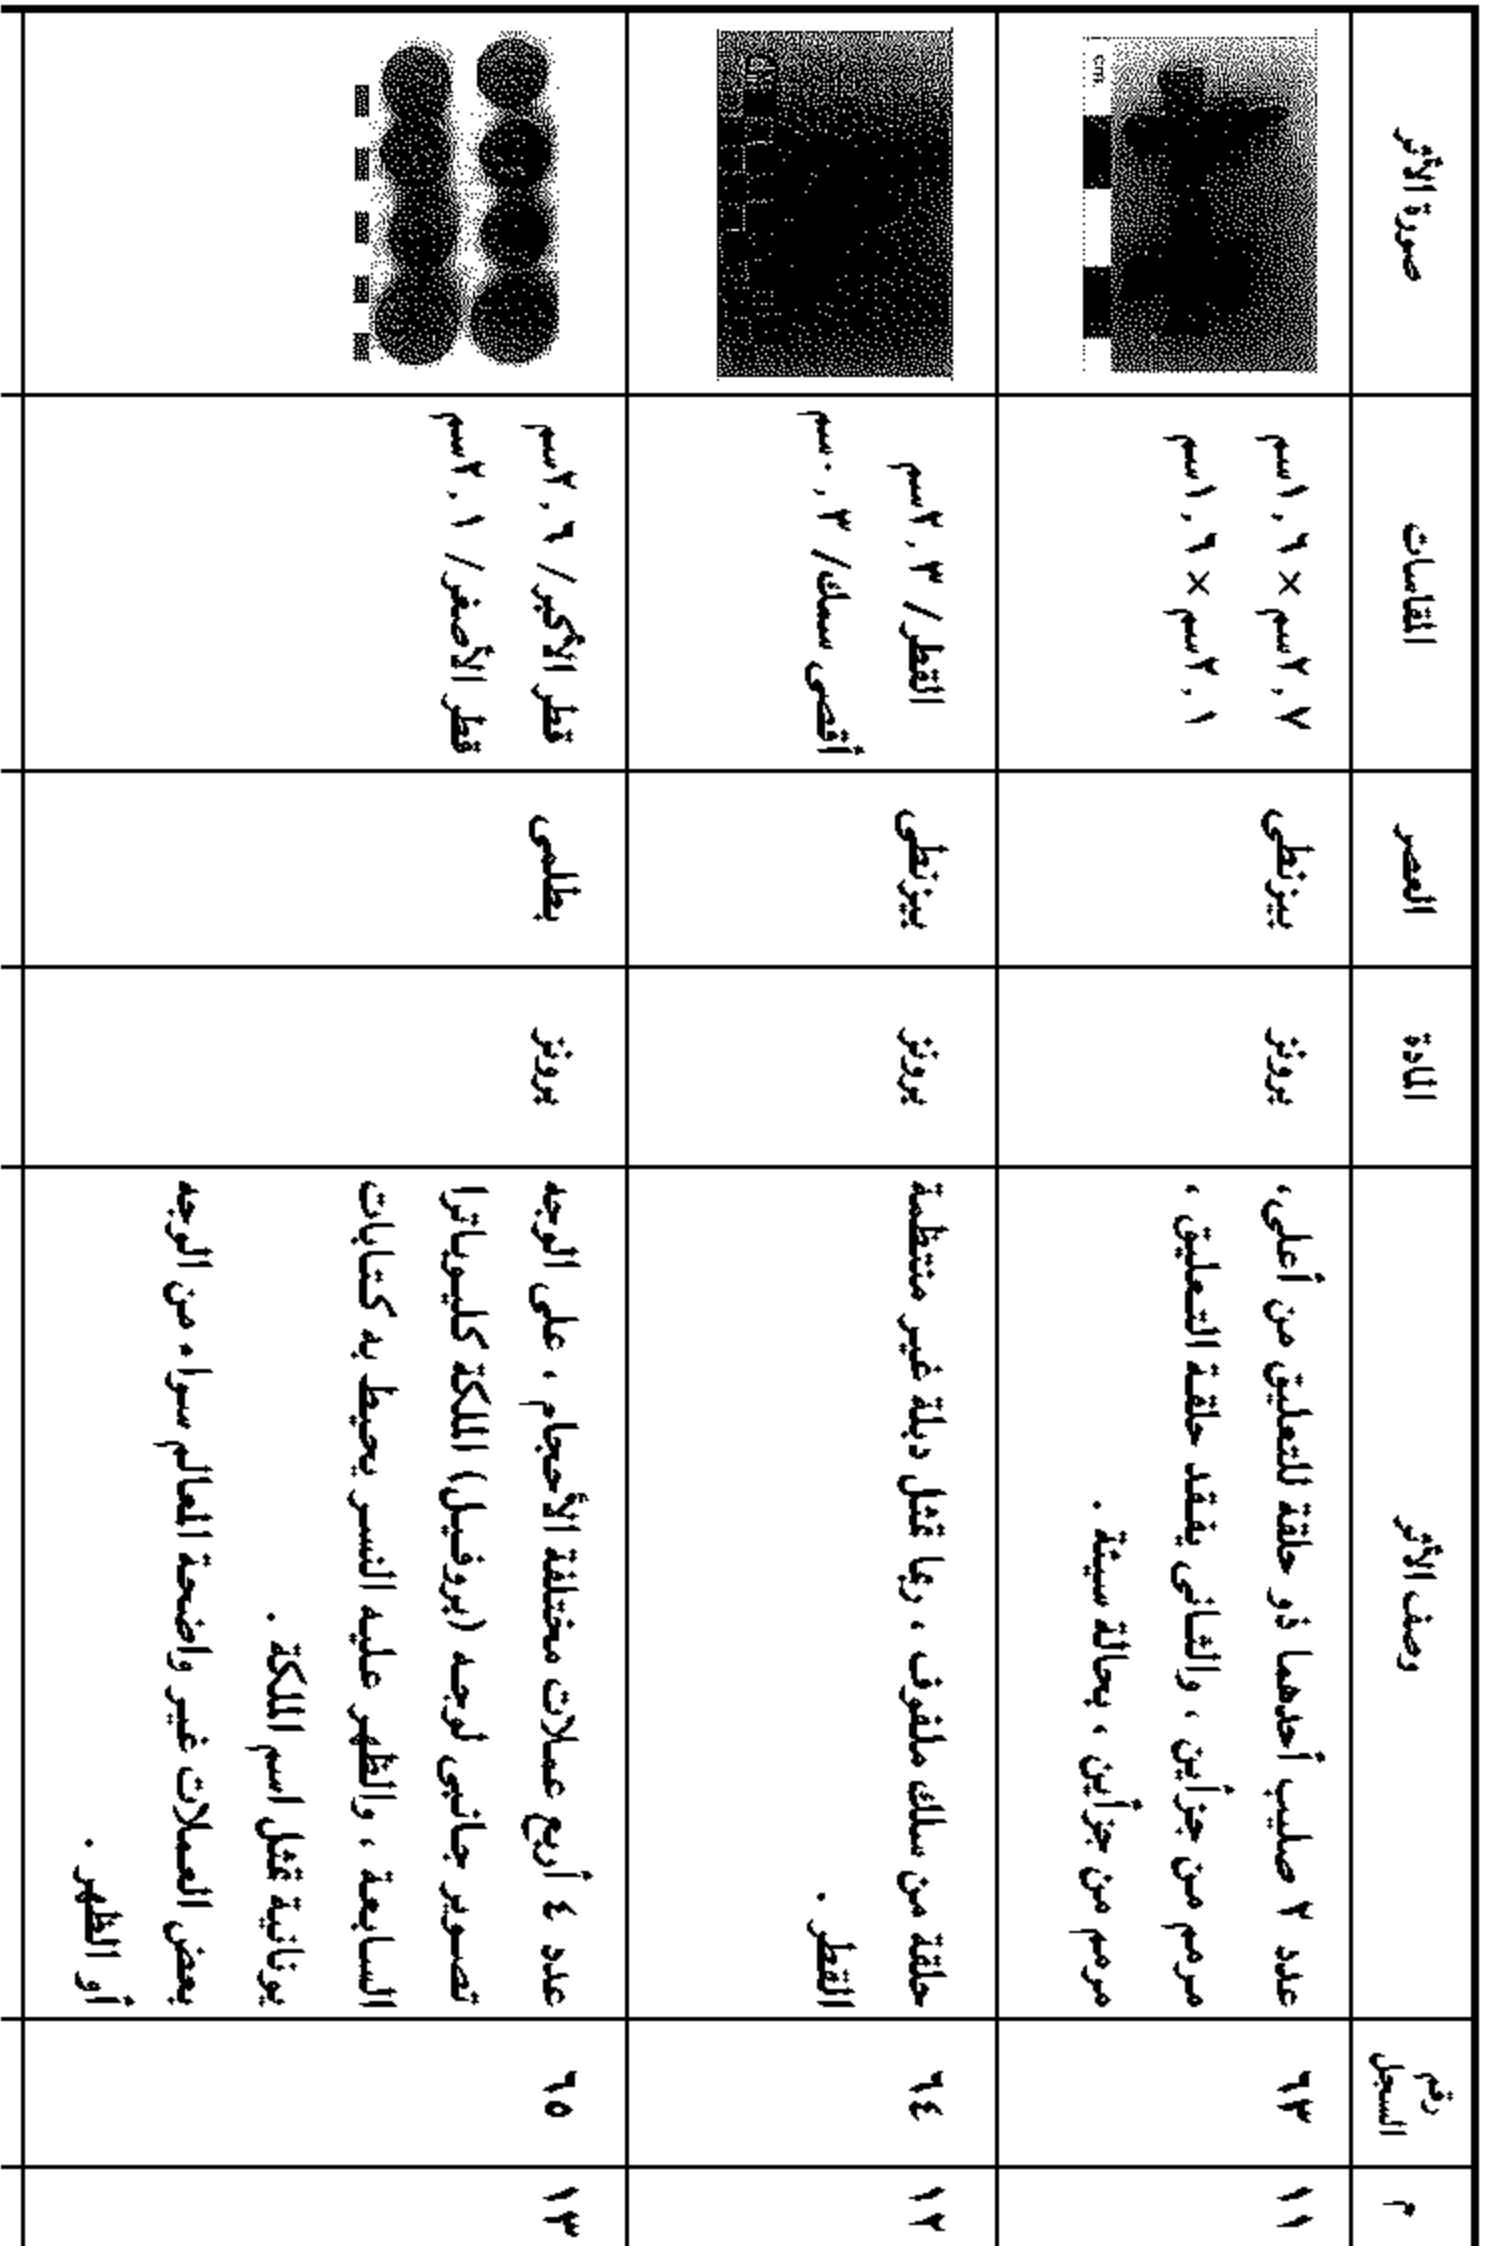 م
رقم
السجل
وصف الأثر
المادة
العصر
المقاسات
صورة الأثر
١١
٦٣
عدد ٢ صليب أحدهما ذو حلقة للتعليق من أعلى،
مرمم من جزأين ، والثانى يفقد حلقة التعليق ،
مرمم من جزأين ، بحالة سيئة .
برونز
بيزنطى
٢,٧سم × ١,٦سم
٢,١سم × ١,٦سم
cm.
١٢
٦٤
حلقة من سلك ملفوف ، ربما تمثل دبلة غير منتظمة
القطر .
برونز
بيزنطى
القطر/ ٢,٣سم
أقصى سمك/ ٠,٣سم
١٣
٦٥
عدد ٤ أربع عملات مختلفة الأحجام ، على الوجه
تصوير جانبى لوجه (بروفيل) الملكة كليوباترا
السابعة ، والظهر عليه النسر يحيط به كتابات
يونانية تمثل اسم الملكة .
بعض العملات غير واضحة المعالم سواء من الوجه
أو الظهر .
برونز
بطلمى
قطر الأكبر/ ٢,٦سم
قطر الأصغر/ ٢,١سم